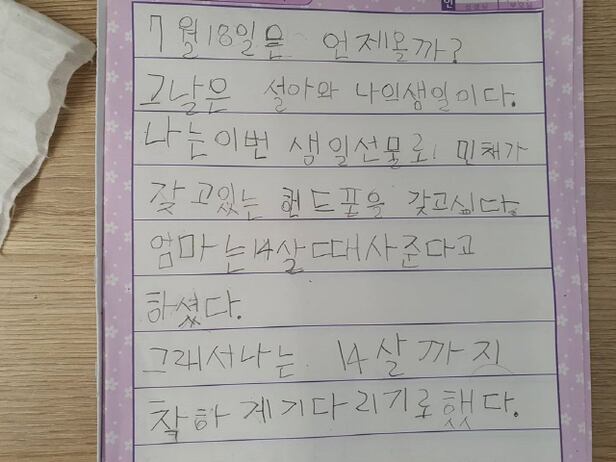 7월18일은 언제올까?
그날은 설아와 나의생일이다.
나는이번 생일선물로! 민채가
잦고있는 핸드포을 갖고싶다.
엄마는14살때사준다고
하셨다.
그래서나는 14살까지
착하게기다리기로했다.